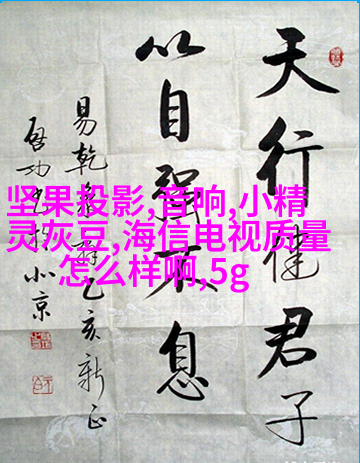 天行健君子
以自强不息
易乾象辞乙亥新正
启功书于北京
坚果投影,音响,小精
灵灰豆,海信电视质量
怎么样啊,5g